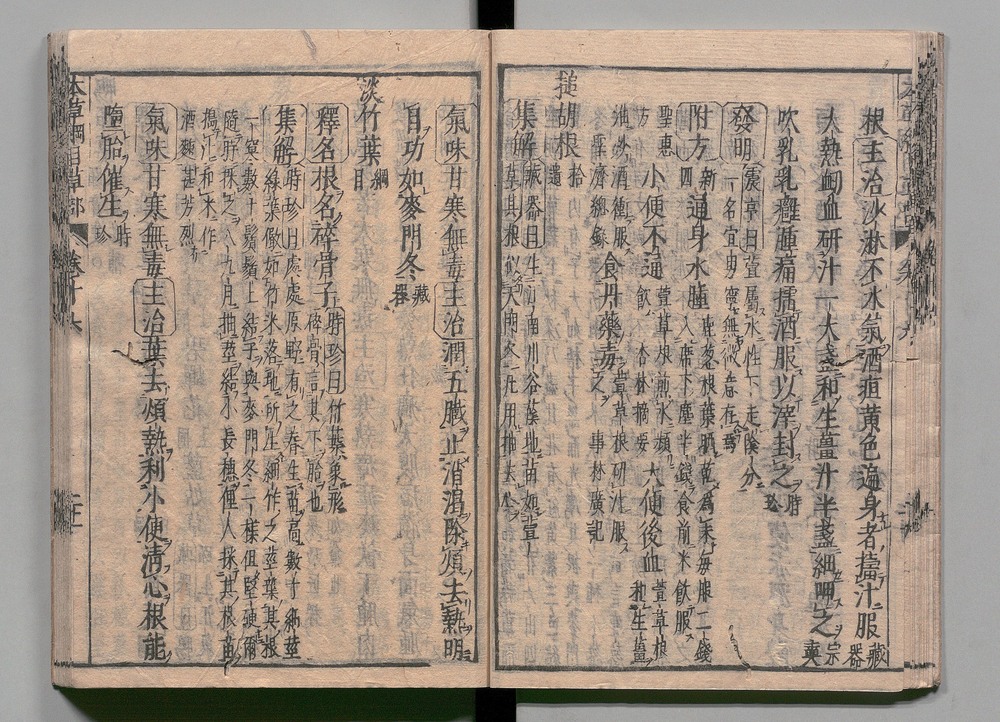 根主治沙淋下水氣酒疸黃色遍身者擣汁服藏器
大熱衂血研汁一大盞和生薑汁半盞細呷之宗奭
吹乳乳癰腫痛擂酒服以滓封之時珍
發明震亨曰萱屬木性下走陰分
一名宜男寧無微意存焉
附方新四通身水腫鹿葱根葉晒乾爲末每服二錢
入席下塵半錢食前米飲服
聖惠方小便不通萱草根煎水頻飲杏林摘要大便後血萱草根和生薑
油炒酒衝服聖濟總錄食丹藥毒萱草根研汁服之事林廣記
搥胡根拾遺
集解藏器曰生江南川谷蔭地苗如萱
草其根似天門冬凡用抽去心
氣味甘寒無毒主治潤五臟止消渴除煩去熱明
目功如麥門冬藏器
淡竹葉綱目
釋名根名碎骨子時珍曰竹葉象形
碎骨言其下胎也
集解時珍曰處處原野有之春生苗高數寸細莖
綠葉儼如竹米落地所生細竹之莖葉其根
一窠數十鬚鬚上結子與麥門冬一樣但堅硬爾
隨時采之八九月抽莖結小長穗俚人採其根苗
搗汁和米作
酒麴甚芳烈
氣味甘寒無毒主治葉去煩熱利小便清心根能
墮胎催生時珍
本草綱目草部 卷十六